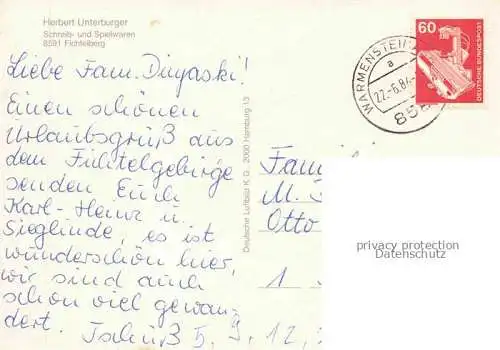 Herbert Unterburger
Schreib- und Spielwaren
8591 Fichtelberg
Liebe Fam. Dugaski!
Einen schönen
Urlaubsgruß aus
dem Fichtelgebirge
senden Euch
Karl-Heinz u.
Sieglinde, es ist
wunderschön hier,
wir sind auch
schon viel gewan-
dert. Tschüß 5, 9, 12,
Deutsche Luftbild K.G., 2000 Hamburg 13
WARMENSTEI
a
22.-6.84
858
60
DEUTSCHE BUNDESPOST
Fam
M.
Otto
1
privacy protection
Datenschutz